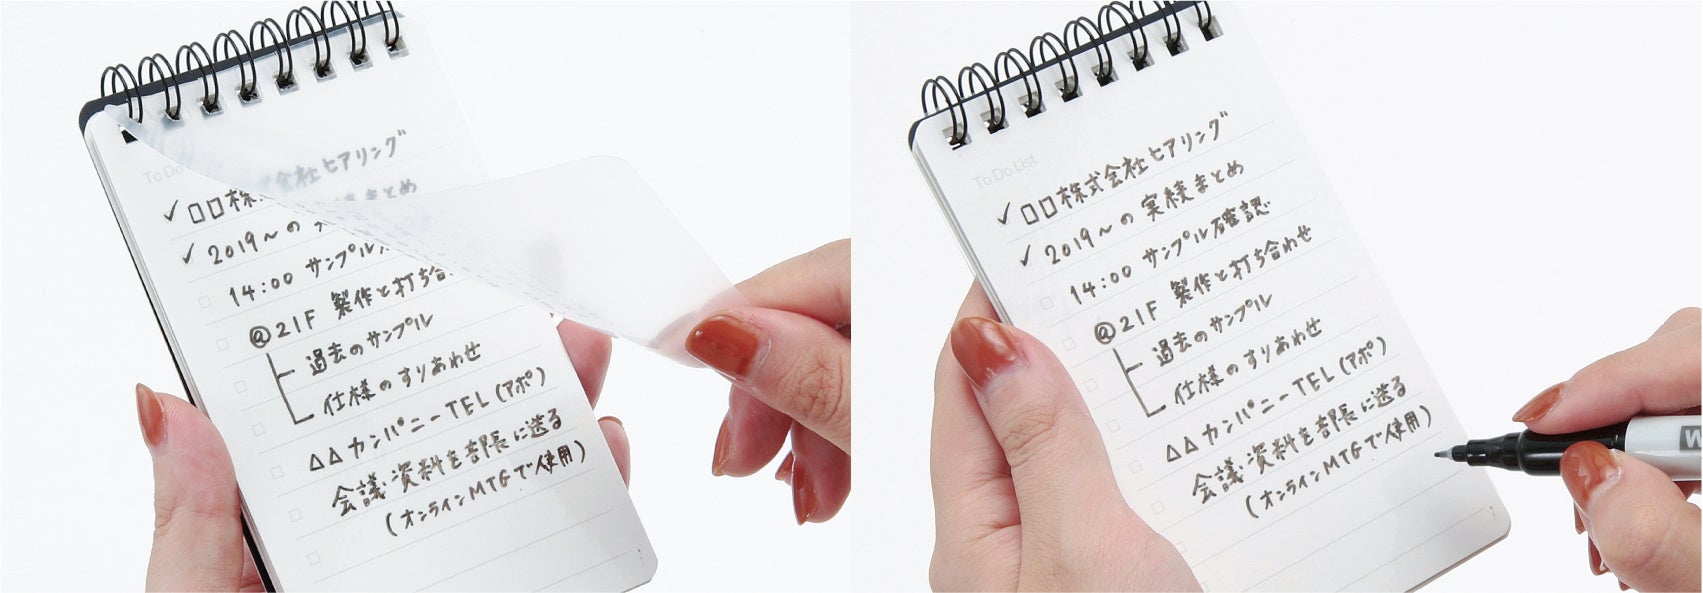 To Do
✓ □□株式会社ヒアリング
✓ 2019～の実績まとめ
14:00 サンプル
@21F 製作と打ち合
過去のサンプル
仕様のすりあわせ
△△カンパニーTEL(アポ)
会議資料を部長に送る
(オンラインMTGで使用)
To Do List
✓ □□株式会社ヒアリング
✓ 2019～の実績まとめ
14:00 サンプル確認
@21F 製作と打ち合わせ
過去のサンプル
仕様のすりあわせ
△△カンパニーTEL(アポ)
会議資料を部長に送る
(オンラインMTGで使用)
W